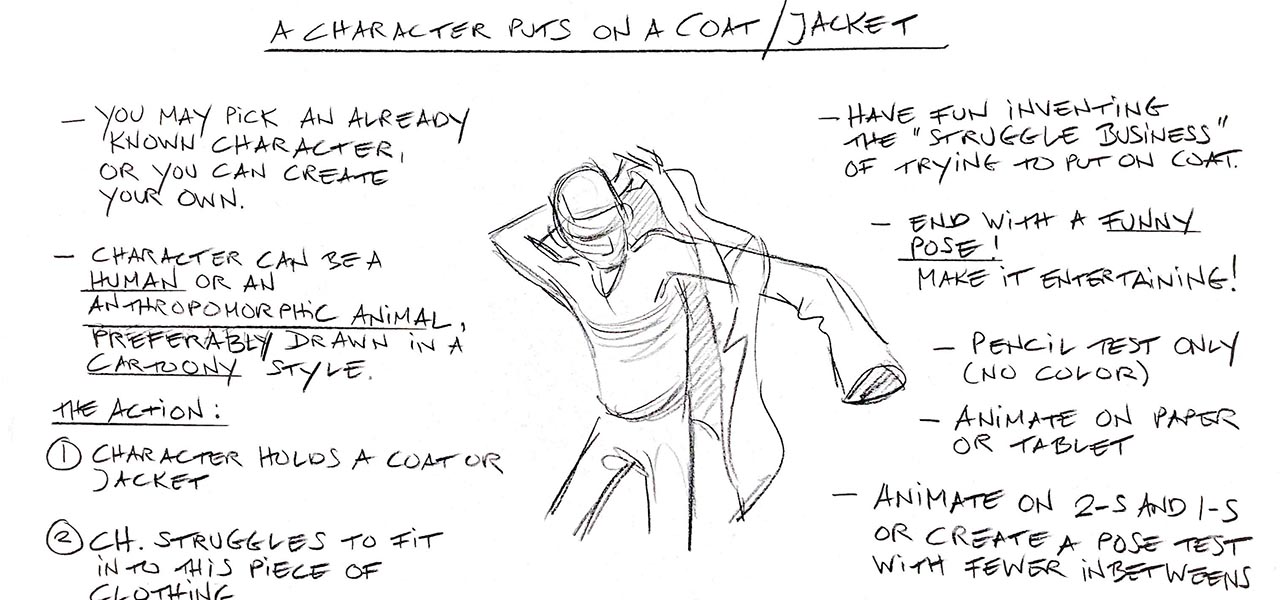 A CHARACTER PUTS ON A COAT/JACKET
— YOU MAY PICK AN ALREADY
KNOWN CHARACTER,
OR YOU CAN CREATE
YOUR OWN.
— CHARACTER CAN BE A
HUMAN OR AN
ANTHROPOMORPHIC ANIMAL,
PREFERABLY DRAWN IN A
CARTOONY STYLE.
THE ACTION:
① CHARACTER HOLDS A COAT OR
JACKET
② CH. STRUGGLES TO FIT
INTO THIS PIECE OF
CLOTHING
— HAVE FUN INVENTING
THE "STRUGGLE BUSINESS"
OF TRYING TO PUT ON COAT.
— END WITH A FUNNY
POSE!
MAKE IT ENTERTAINING!
— PENCIL TEST ONLY
(NO COLOR)
— ANIMATE ON PAPER
OR TABLET
— ANIMATE ON 2-S AND 1-S
OR CREATE A POSE TEST
WITH FEWER INBETWEENS